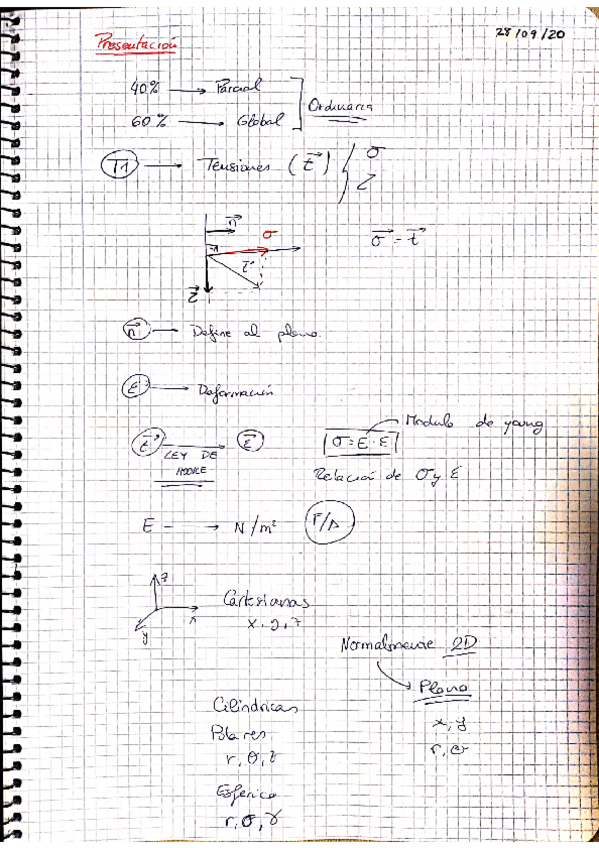 28/09/20
Presentación
40% → Parcial
60% → Global
Ordinaria
T1 → Tensiones (t⃗) { σ
τ
n⃗
σ
t⃗
τ⃗
σ⃗ - t⃗
n⃗ → Define al plano.
ε → Deformación
t⃗ → ε⃗
LEY DE
HOOKE
σ = E · ε
Modulo de young
Relación de σ y ε
E → N/m² F/A
z
x
y
Cartesianas
x, y, z
Normalmente 2D
Plano
x, y
r, θ
Cilindricas
Polares
r, θ, z
Esferica
r, θ, γ